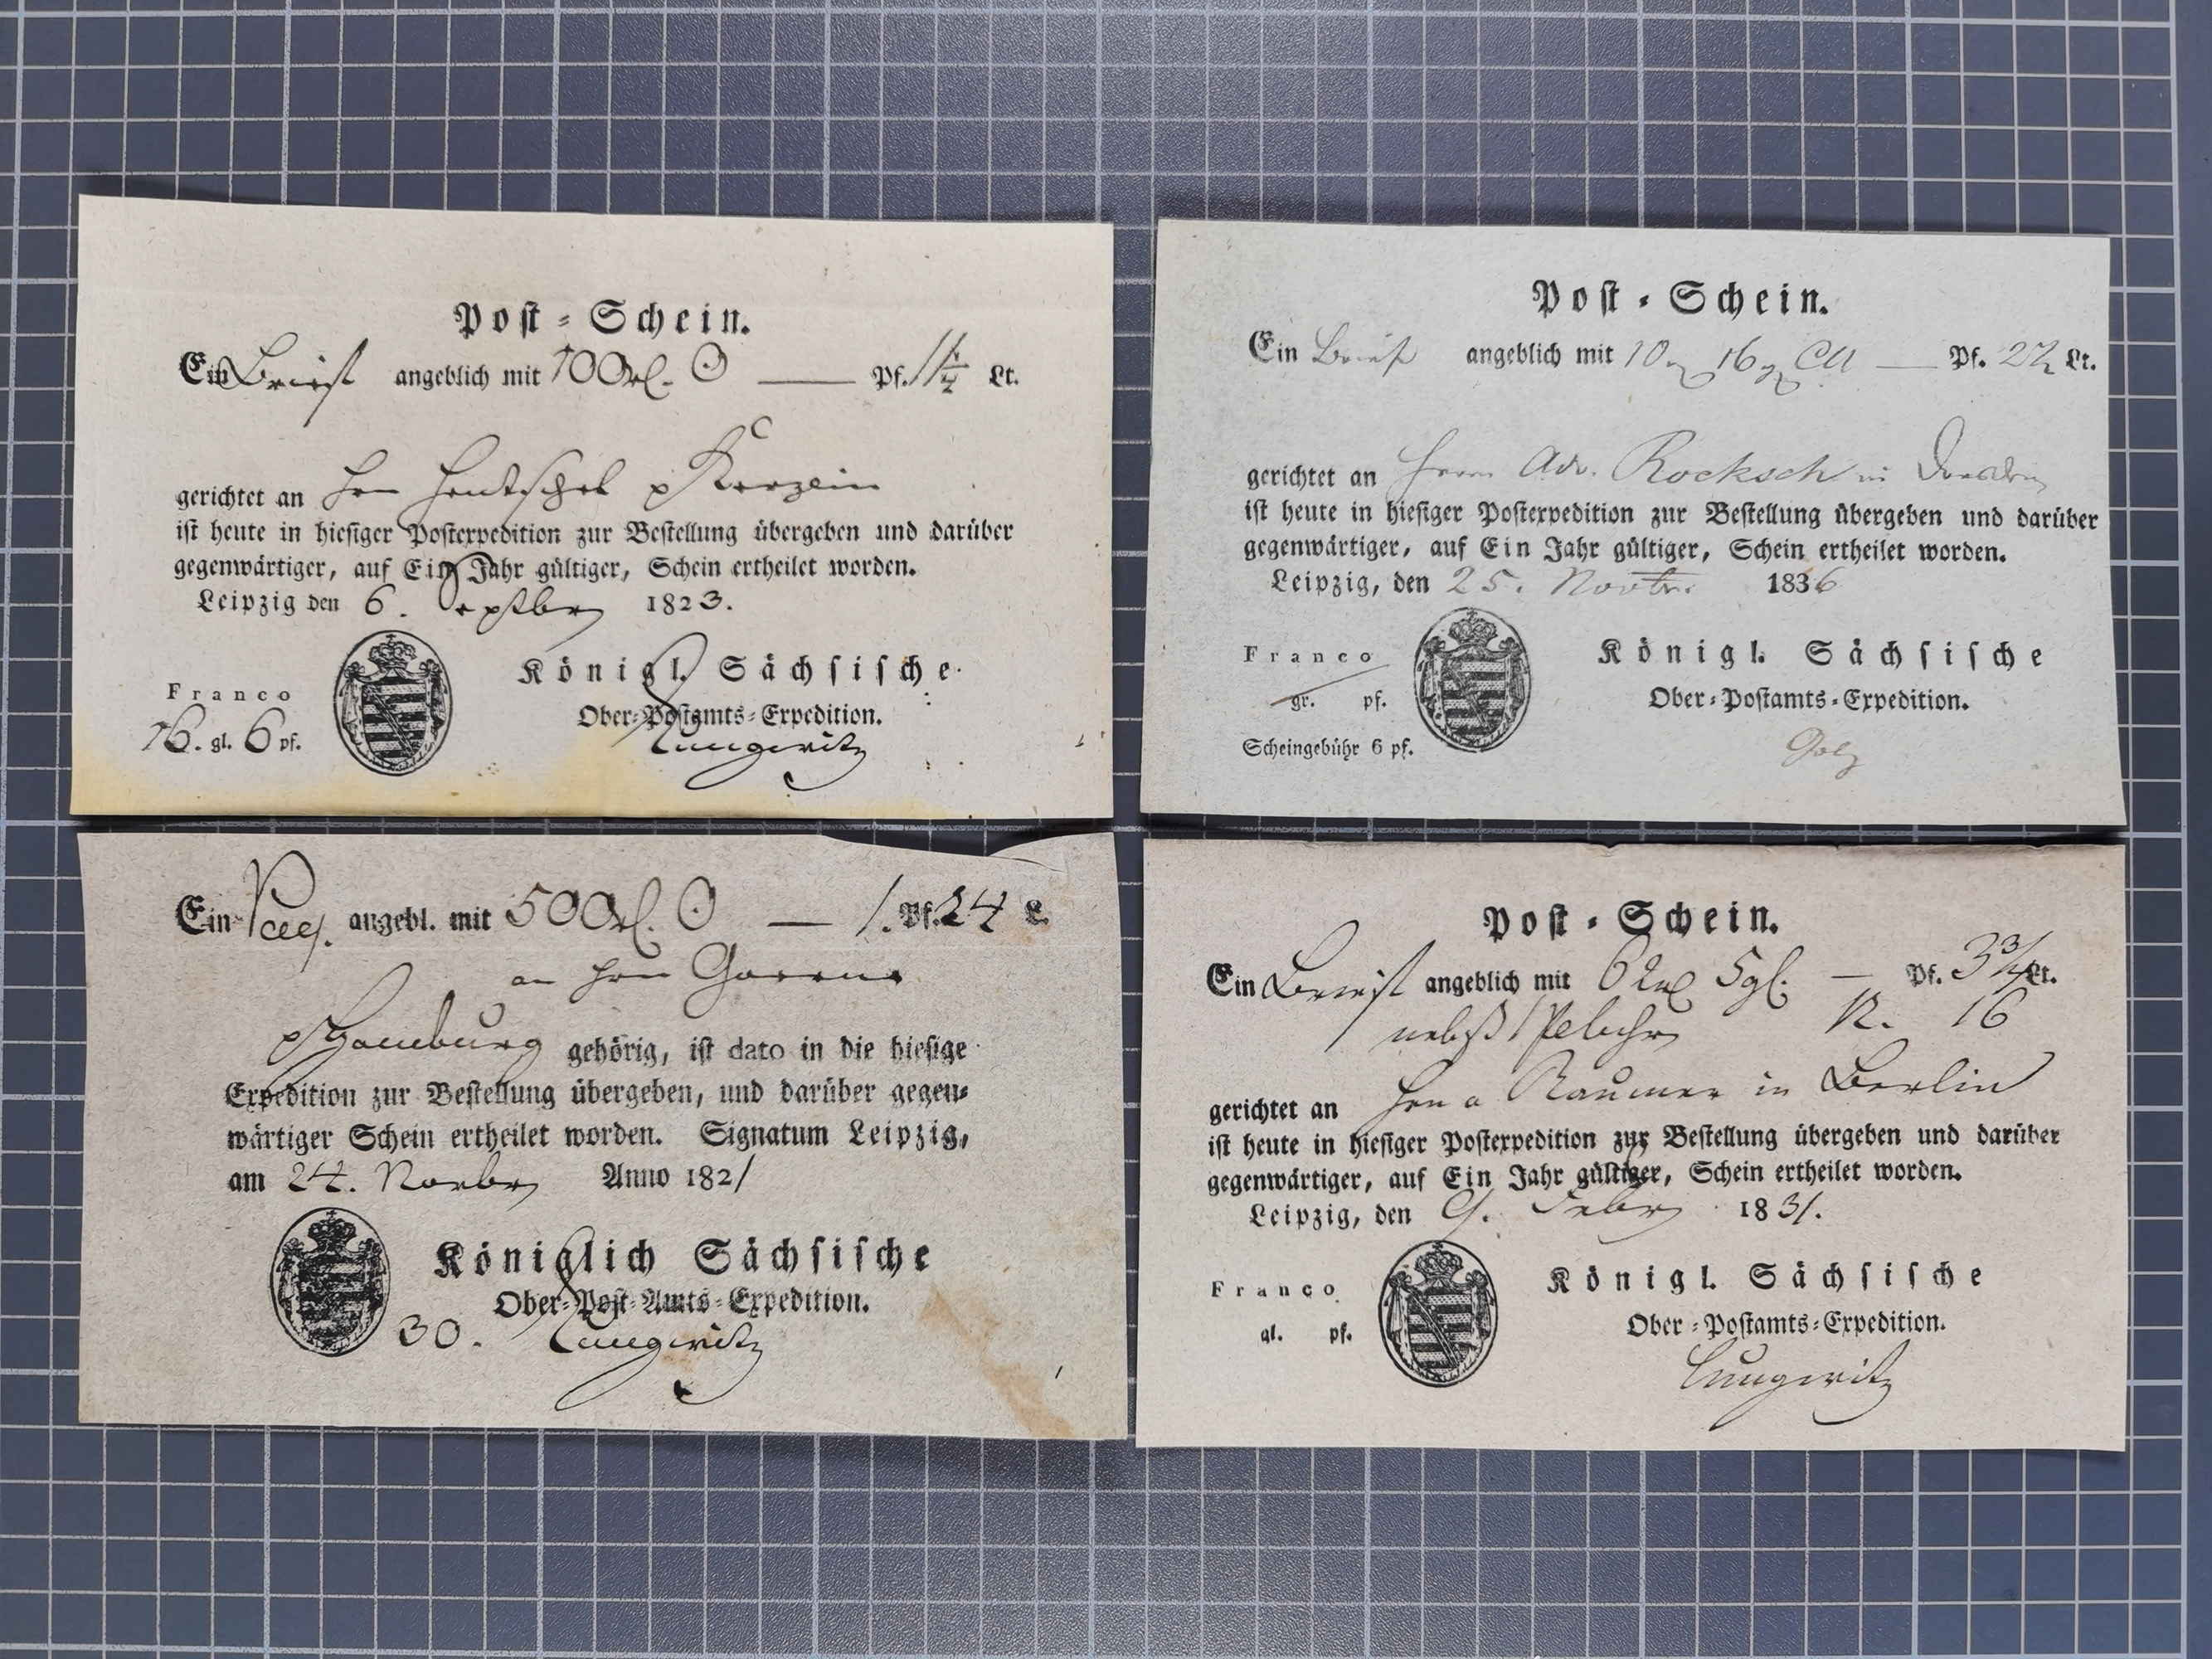 Post-Schein.
Ein Brief angeblich mit 100 rl. — Pf. 11½ Lt.
gerichtet an Hrn Hentschel p
ist heute in hiesiger Postexpedition zur Bestellung übergeben und darüber
gegenwärtiger, auf Ein Jahr gültiger, Schein ertheilet worden.
Leipzig den 6. Septbr 1823.
Königl. Sächsische
Ober-Postamts-Expedition.
Franco
16. gl. 6 pf.
Langwitz
Post-Schein.
Ein Brief angeblich mit 10 16 — Pf. 2½ Lt.
gerichtet an Herrn Adv. Rocksch in Dresden
ist heute in hiesiger Postexpedition zur Bestellung übergeben und darüber
gegenwärtiger, auf Ein Jahr gültiger, Schein ertheilet worden.
Leipzig, den 25. Novbr. 1836
Franco
gr. pf.
Scheingebühr 6 pf.
Königl. Sächsische
Ober-Postamts-Expedition.
Ein angebl. mit 500 rl. — 1. Pf. 24 L.
an Hrn
p Hamburg gehörig, ist dato in die hiesige
Expedition zur Bestellung übergeben, und darüber gegen-
wärtiger Schein ertheilet worden. Signatum Leipzig,
am 24. Novbr Anno 1821
Königlich Sächsische
Ober-Post-Amts-Expedition.
30. Langwitz
Post-Schein.
Ein Brief angeblich mit 5 gl. — Pf. 3¾ Lt.
nebst 16
gerichtet an Hrn Raumer in Berlin
ist heute in hiesiger Postexpedition zur Bestellung übergeben und darüber
gegenwärtiger, auf Ein Jahr gültiger, Schein ertheilet worden.
Leipzig, den 9. Febr 1831.
Franco
gl. pf.
Königl. Sächsische
Ober-Postamts-Expedition.
Langwitz